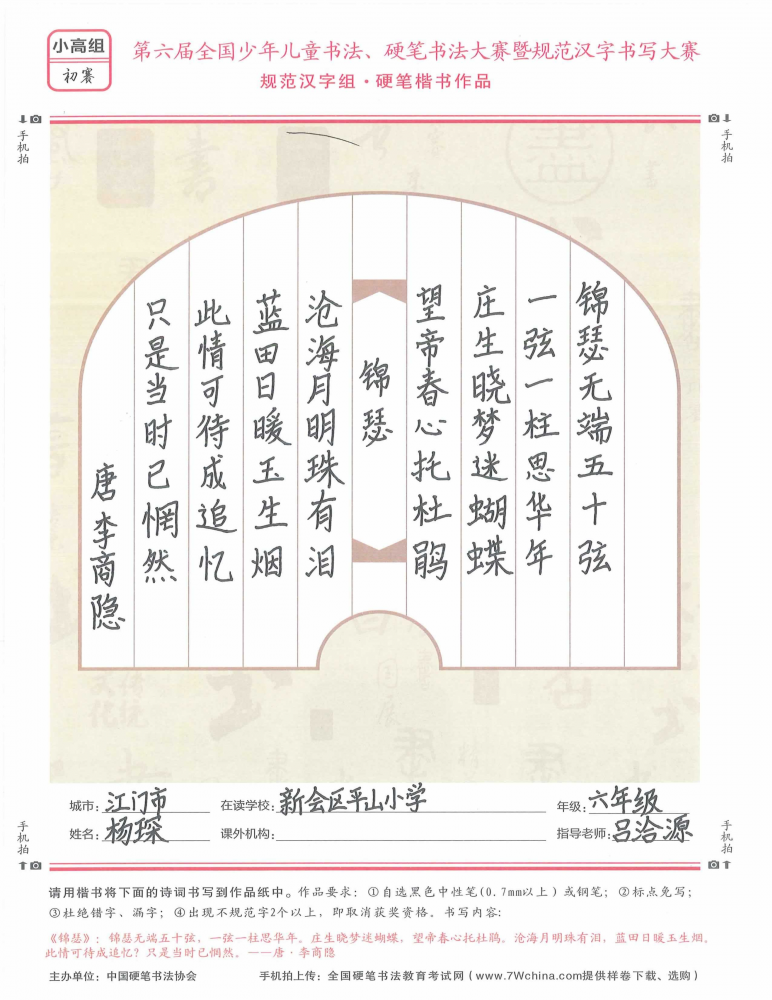 小高组
初赛
第六届全国少年儿童书法、硬笔书法大赛暨规范汉字书写大赛
规范汉字组·硬笔楷书作品
手机拍
手机拍
锦瑟无端五十弦
一弦一柱思华年
庄生晓梦迷蝴蝶
望帝春心托杜鹃
锦瑟
沧海月明珠有泪
蓝田日暖玉生烟
此情可待成追忆
只是当时已惘然
唐李商隐
城市：江门市 在读学校：新会区平山小学 年级：六年级
姓名：杨琛 课外机构： 指导老师：吕洽源
手机拍
手机拍
请用楷书将下面的诗词书写到作品纸中。作品要求：①自选黑色中性笔(0.7mm以上)或钢笔；②标点免写；
③杜绝错字、漏字；④出现不规范字2个以上，即取消获奖资格。书写内容：
《锦瑟》：锦瑟无端五十弦，一弦一柱思华年。庄生晓梦迷蝴蝶，望帝春心托杜鹃。沧海月明珠有泪，蓝田日暖玉生烟。
此情可待成追忆？只是当时已惘然。——唐·李商隐
主办单位：中国硬笔书法协会 手机拍上传：全国硬笔书法教育考试网（www.7Wchina.com提供样卷下载、选购）